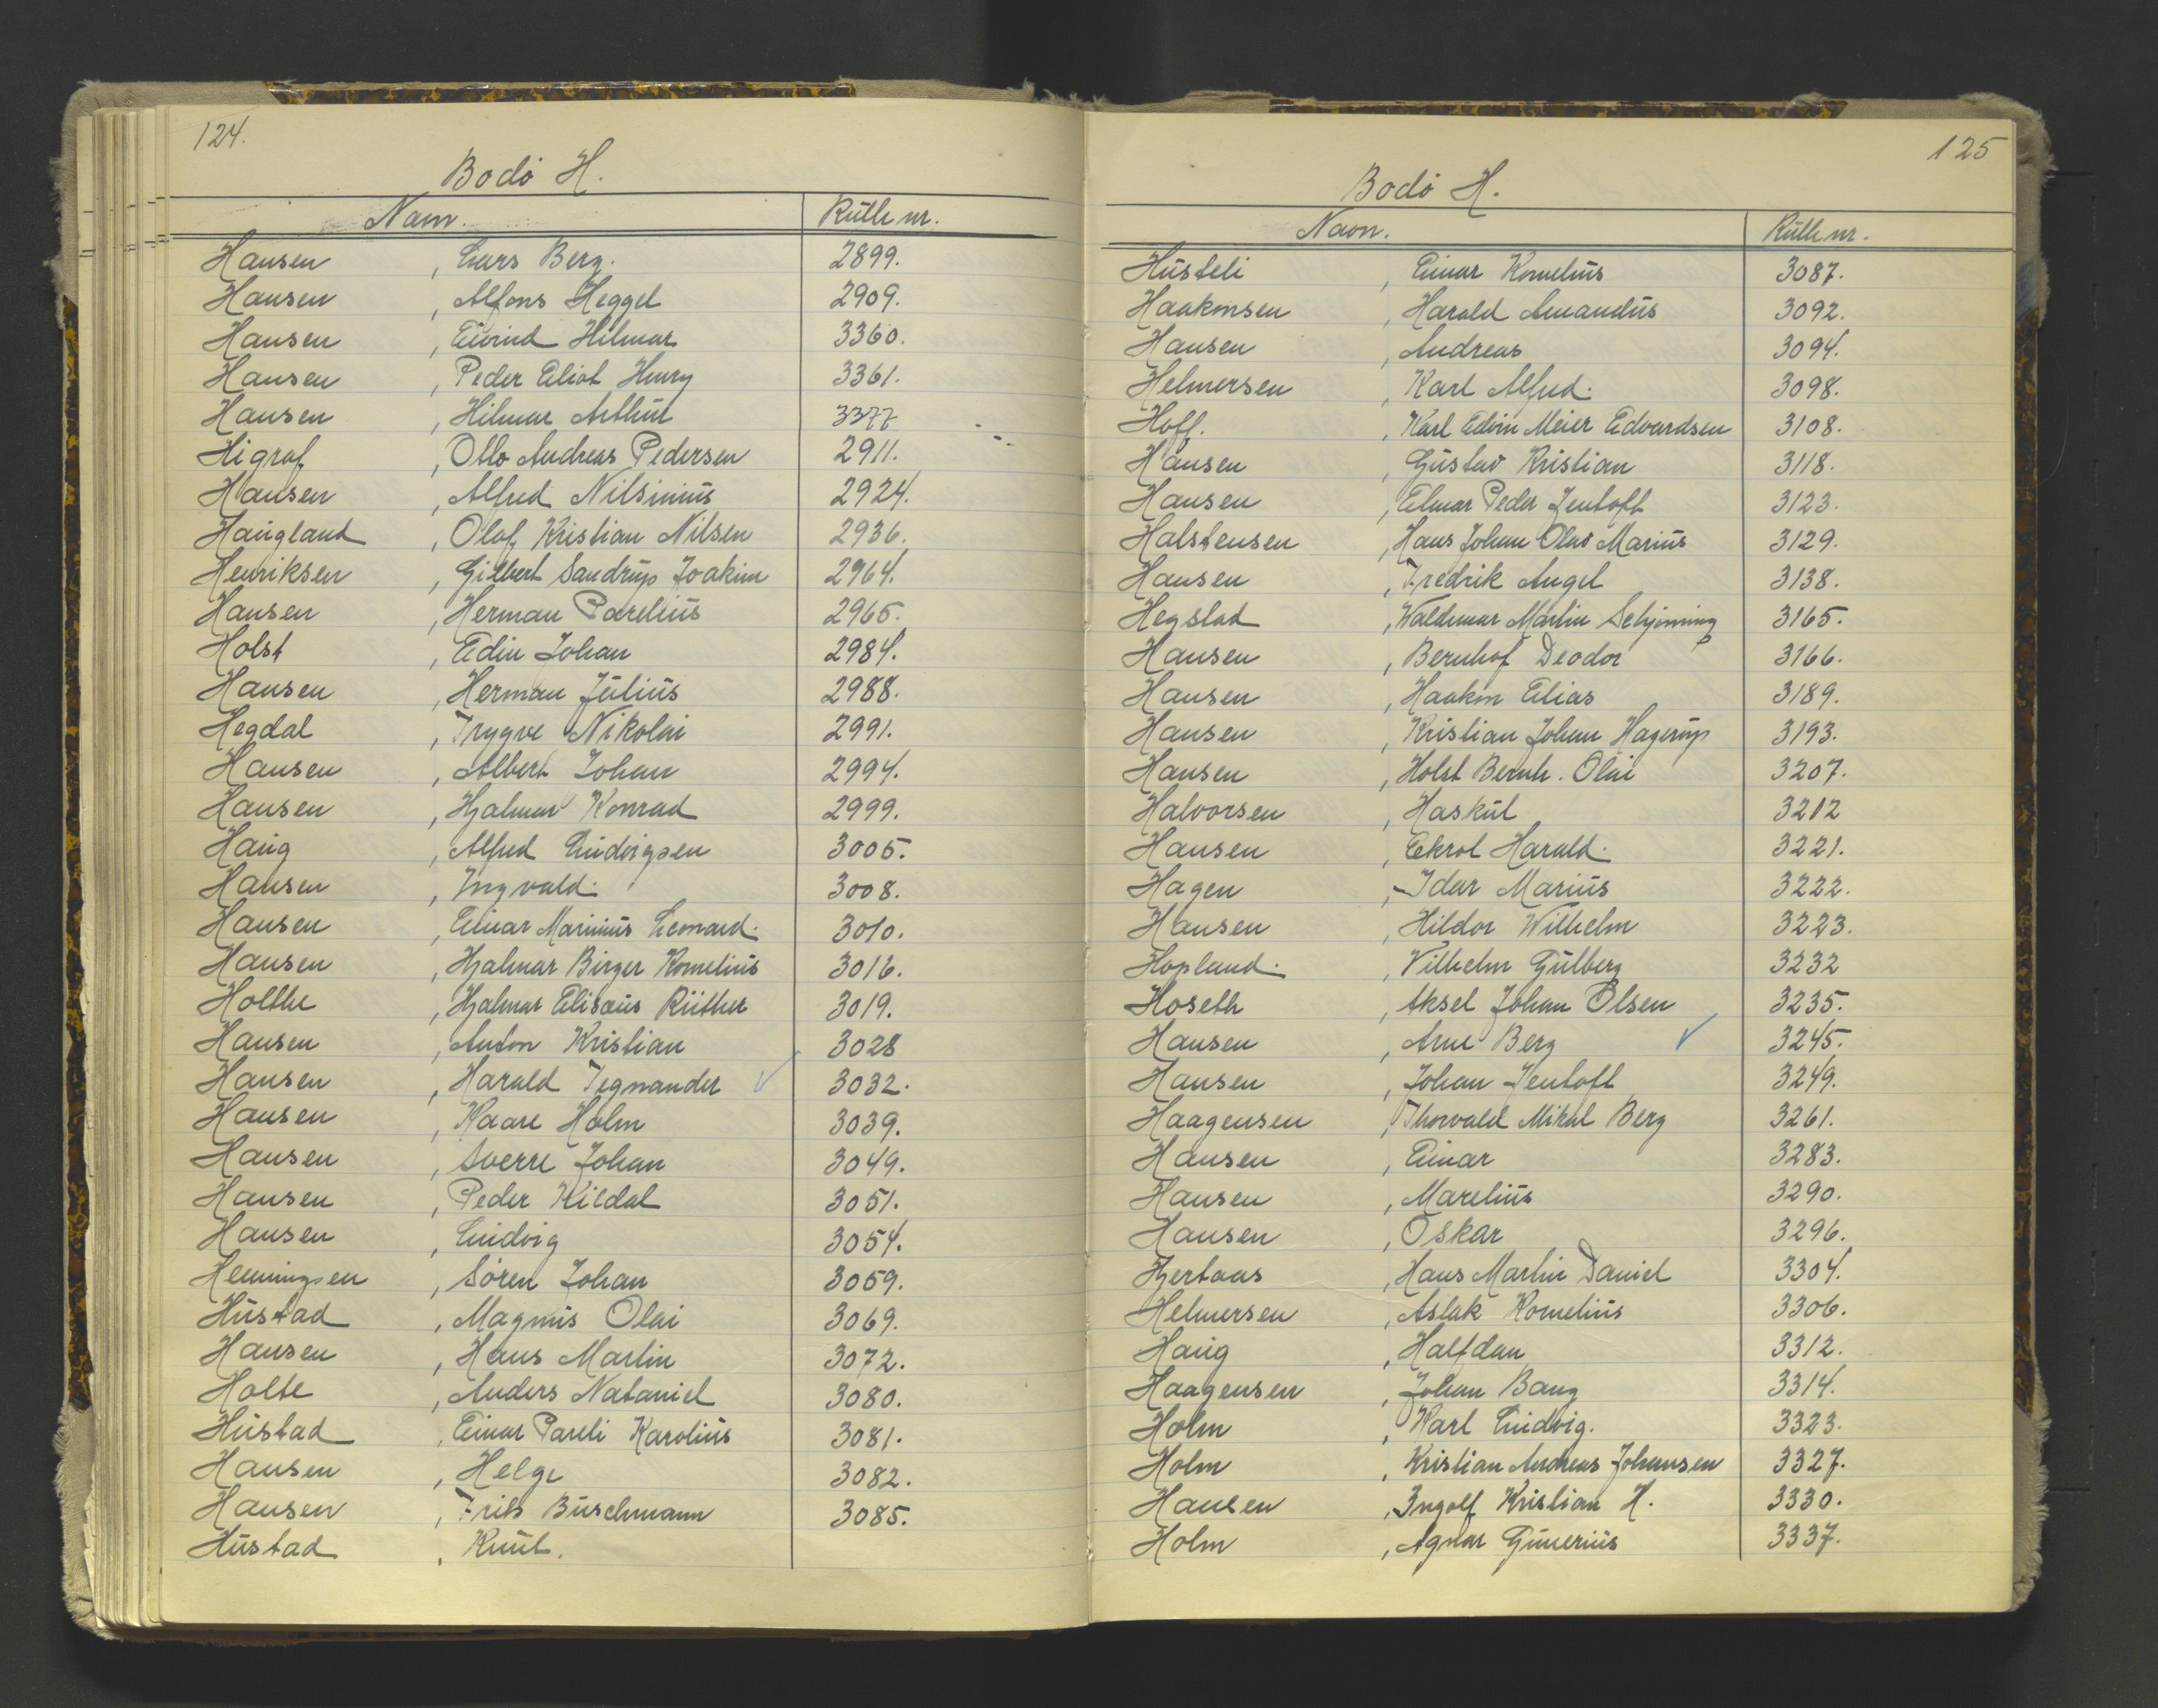 124.
Bodö H.
Navn. Rulle nr.
Hansen , Lars Berg. 2899.
Hansen , Alfons Heggel 2909.
Hansen , Eivind Hilmar 3360.
Hansen , Peder Eliot Henry 3361.
Hansen , Hilmar Arthur 3377
Higraf , Otto Andreas Pedersen 2911.
Hansen , Alfred Nilsinius 2924.
Haugland , Olaf Kristian Nilsen 2936.
Henriksen , Gilbert Sandrup Joakim 2964.
Hansen , Herman Parelius 2965.
Holst , Edin Johan 2984.
Hansen , Herman Julius 2988.
Hegdal , Trygve Nikolai 2991.
Hansen , Albert Johan 2994.
Hansen , Hjalmar Konrad 2999.
Haug , Alfred Ludvigsen 3005.
Hansen , Ingvald. 3008.
Hansen , Einar Marinius Leonard. 3010.
Hansen , Hjalmar Birger Kornelius 3016.
Holthe , Hjalmar Elisæus Rüther 3019.
Hansen , Anton Kristian 3028
Hansen , Harald Tegnander ✓ 3032.
Hansen , Kaare Holm 3039.
Hansen , Sverre Johan 3049.
Hansen , Peder Kildal 3051.
Hansen , Ludvig 3054.
Henningsen , Sören Johan 3059.
Hustad , Magnus Olai 3069.
Hansen , Hans Martin 3072.
Holte , Anders Nataniel 3080.
Hustad , Einar Pareli Karolius 3081.
Hansen , Helge 3082.
Hansen , Frits Buschmann 3085.
Hustad , Knut.
125
Bodö H.
Navn. Rulle nr.
Husteli , Einar Kornelius 3087.
Haakonsen , Harald Amandus 3092.
Hansen , Andreas 3094.
Helmersen , Karl Alfred. 3098.
Hoff. , Karl Edvin Meier Edvardsen 3108.
Hansen , Gustav Kristian 3118.
Hansen , Elmar Peder Jentoft 3123.
Halstensen , Hans Johan Olav Marius 3129.
Hansen , Fredrik Angel 3138.
Hegstad , Waldemar Martin Schjönning 3165.
Hansen , Bernhof Deodor 3166.
Hansen , Haakon Elias 3189.
Hansen , Kristian Johan Hagerup 3193.
Hansen , Holst Bernh. Olai 3207.
Halvorsen , Haskul 3212
Hansen , Ekrol Harald. 3221.
Hagen , Idar Marius 3222.
Hansen , Hildor Wilhelm 3223.
Hopland. , Vilhelm Gulberg 3232
Hoseth , Aksel Johan Olsen 3235.
Hansen , Arne Berg ✓ 3245.
Hansen , Johan Jentoft 3249.
Haagensen , Thorvald Mikal Berg 3261.
Hansen , Einar 3283.
Hansen , Marelius 3290.
Hansen , Oskar 3296.
Hjertaas , Hans Martin Daniel 3304.
Helmersen , Aslak Kornelius 3306.
Haug , Halfdan 3312.
Haagensen , Johan Bang 3314.
Holm , Karl Ludvig. 3323.
Holm , Kristian Andreas Johansen 3327.
Hansen , Ingolf Kristian H. 3330.
Holm , Agnar Gunerius 3337.